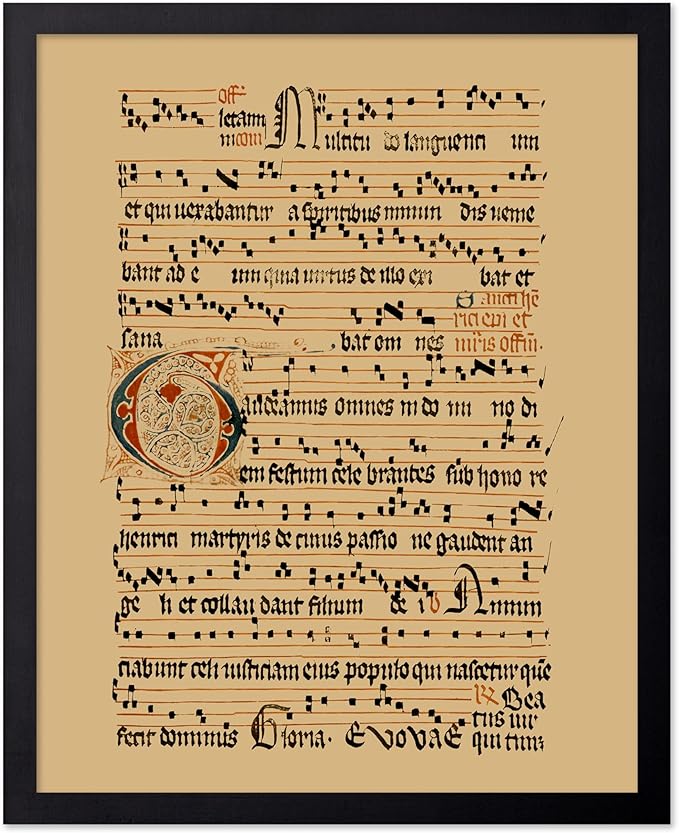 Off.
letamī
Multitu do languenti um
et qui uexabantur a spiritibus inmun dis uenie
bant ad e um quia uirtus de illo exi bat et
Sancti hē
rici epi et
sana bat om nes mr̄is offm̄.
Gaudeamus omnes in do mi no di
em festum cele brantes sub hono re
henrici martyris de cuius passio ne gaudent an
ge li et collau dant filium de i V Annun
ciabunt celi iusticiam eius populo qui nascetur quē
℟ Bea
tus uir
fecit dominus Gloria. EVOVAE qui tim